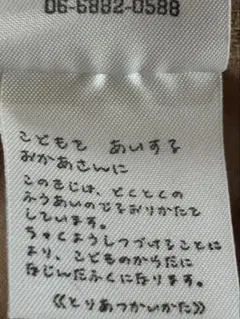 06-6882-0588
こどもを あいする
おかあさんに
このきじは、とくとくの
ふうあいのでるおりかたで
しています。
ちゃくようしつづけることに
より、こどものからだに
なじんだふくになります。
《とりあつかいかた》